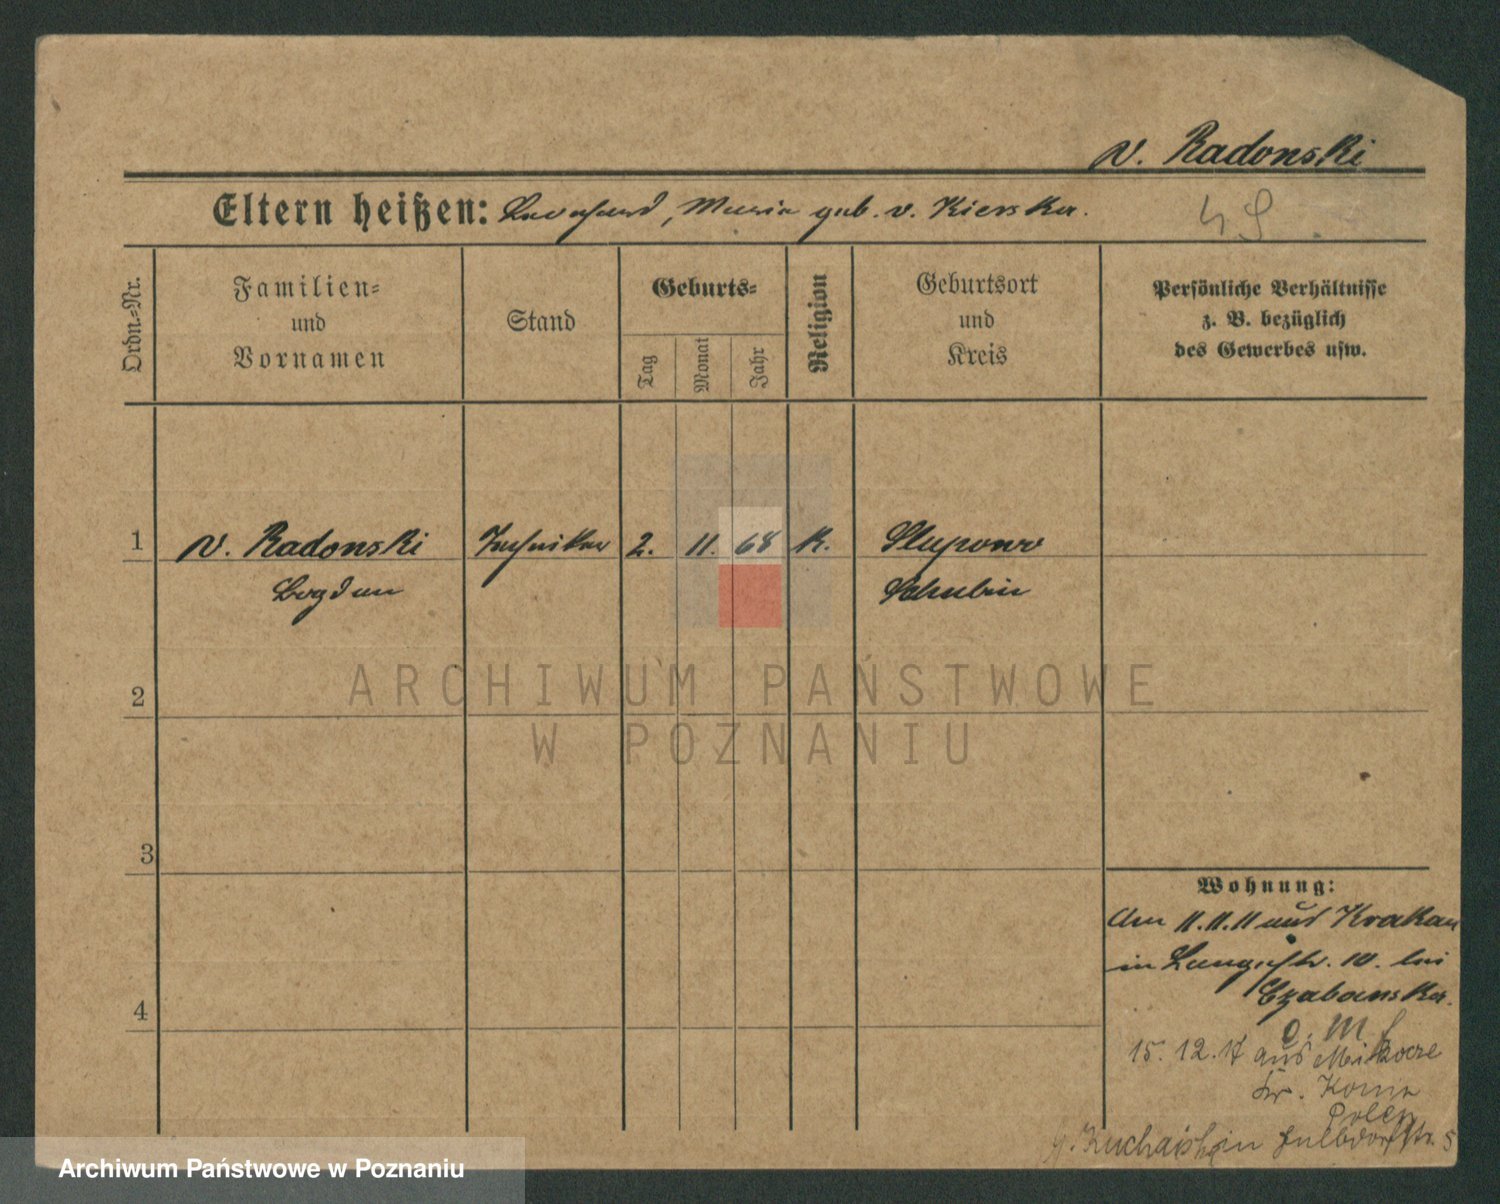 v. Radonski
Eltern heißen: Bernhard, Maria geb. v. Kierska.
Ordn.-Nr.
Familien-
und
Vornamen
Stand
Geburts-
Tag
Monat
Jahr
Religion
Geburtsort
und
Kreis
Persönliche Verhältnisse
z. B. bezüglich
des Gewerbes usw.
1 v. Radonski Techniker 2. 11. 68 k. Slupowo
Bogdan Schubin
2
3
4
Wohnung:
Am 11.11.11 aus Krakau
in Langestr. 10. bei
Czabanska.
15. 12. 17 aus
Kr.
Polen
in str. 5
ARCHIWUM PAŃSTWOWE
W POZNANIU
Archiwum Państwowe w Poznaniu